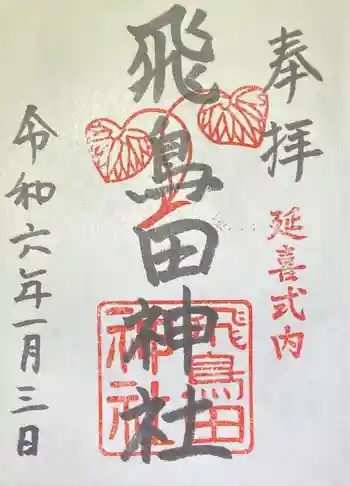 奉拝
延喜式内
飛鳥田神社
飛鳥田
神社
令和六年一月三日